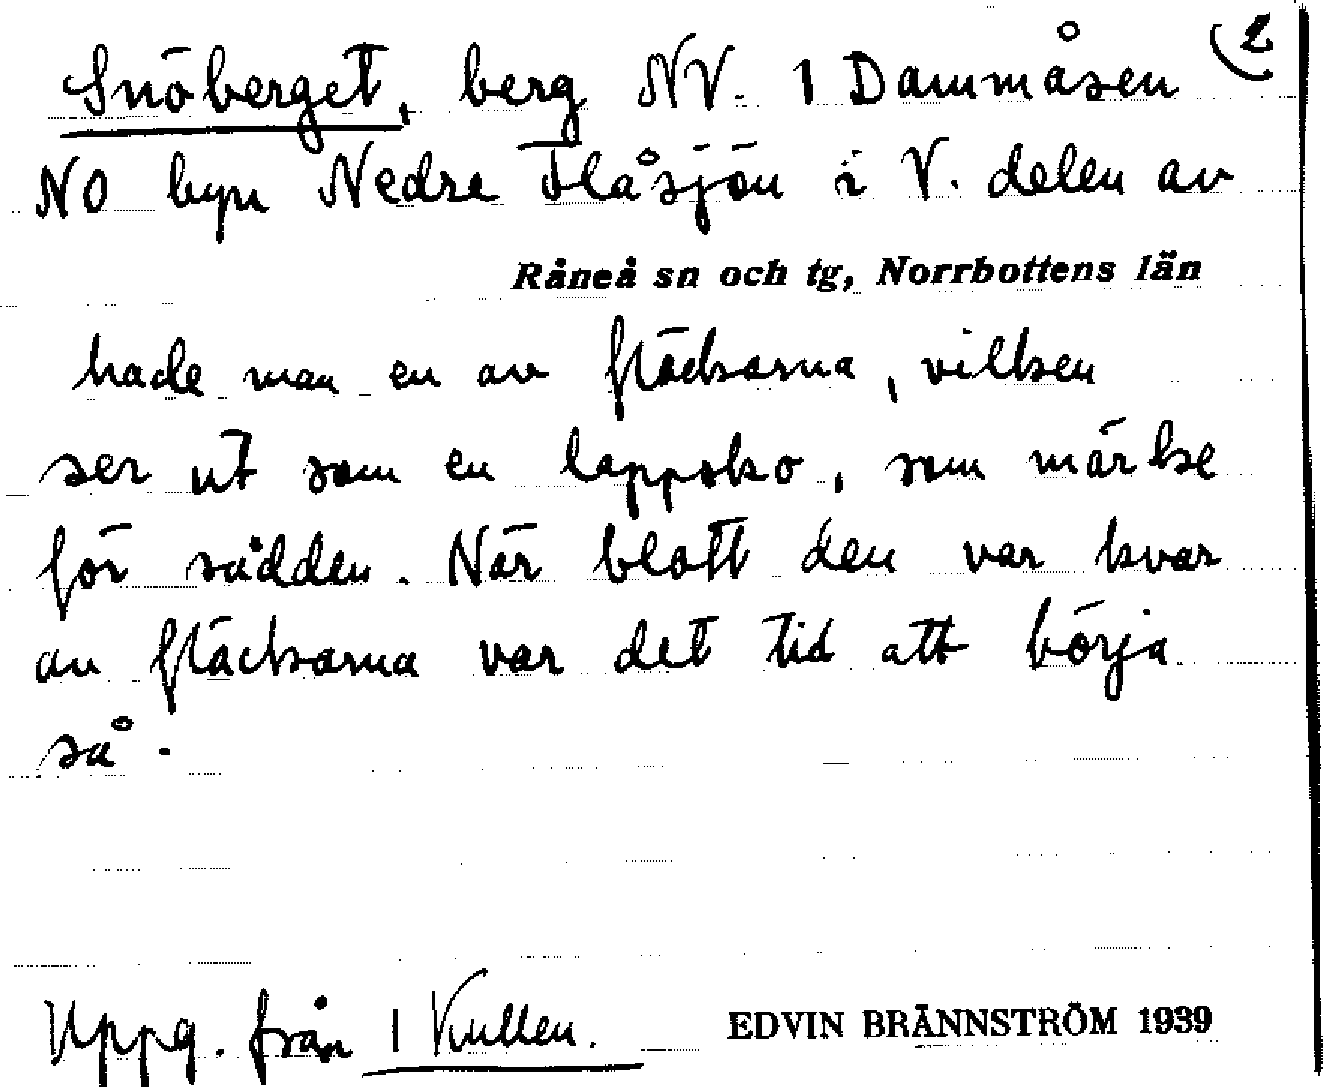 2
Snöberget, berg NV. 1 Dammåsen
NO byn Nedre Flåsjön i V. delen av
Råneå sn och tg, Norrbottens län
hade man en av fläckarna, vilken
ser ut som en lappsko, som märke
för sådden. När blott den var kvar
av fläckarna var det tid att börja
så.
Uppg. från 1 Kullen.
EDVIN BRÄNNSTRÖM 1939